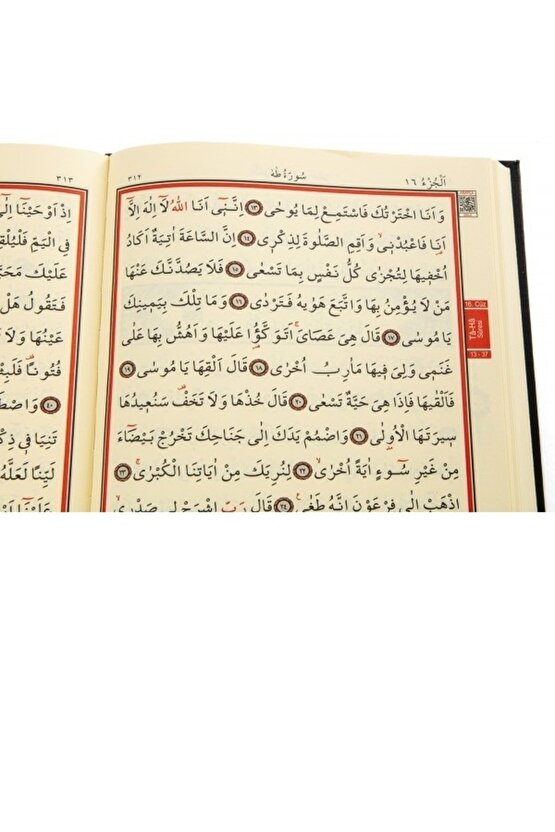 اَلْجُزْءُ ١٦
سُورَةُ طٰهٰ
٣١٢
وَاَنَا اخْتَرْتُكَ فَاسْتَمِعْ لِمَا يُوحٰى ١٣ اِنَّنٓي اَنَا اللّٰهُ لَٓا اِلٰهَ اِلَّٓا
اَنَا۬ فَاعْبُدْنيۙ وَاَقِمِ الصَّلٰوةَ لِذِكْري ١٤ اِنَّ السَّاعَةَ اٰتِيَةٌ اَكَادُ
اُخْفيهَا لِتُجْزٰى كُلُّ نَفْسٍ بِمَا تَسْعٰى ١٥ فَلَا يَصُدَّنَّكَ عَنْهَا
مَنْ لَا يُؤْمِنُ بِهَا وَاتَّبَعَ هَوٰيهُ فَتَرْدٰى ١٦ وَمَا تِلْكَ بِيَمينِكَ
يَا مُوسٰى ١٧ قَالَ هِيَ عَصَايَۚ اَتَوَكَّؤُ۬ا عَلَيْهَا وَاَهُشُّ بِهَا عَلٰى
غَنَمي وَلِيَ فيهَا مَاٰرِبُ اُخْرٰى ١٨ قَالَ اَلْقِهَا يَا مُوسٰى ١٩
فَاَلْقٰيهَا فَاِذَا هِيَ حَيَّةٌ تَسْعٰى ٢٠ قَالَ خُذْهَا وَلَا تَخَفْ۠ سَنُعيدُهَا
سيرَتَهَا الْاُو۫لٰى ٢١ وَاضْمُمْ يَدَكَ اِلٰى جَنَاحِكَ تَخْرُجْ بَيْضَٓاءَ
مِنْ غَيْرِ سُٓوءٍ اٰيَةً اُخْرٰىۙ ٢٢ لِنُرِيَكَ مِنْ اٰيَاتِنَا الْكُبْرٰىۚ ٢٣
اِذْهَبْ اِلٰى فِرْعَوْنَ اِنَّهُ طَغٰى۟ ٢٤ قَالَ رَبِّ اشْرَحْ لي صَدْريۙ
16. Cüz
Tâ-Hâ
Sûresi
13 - 37
٣١٣
اِذْ اَوْحَيْنَٓا اِلٰٓى
فِي الْيَمِّ فَلْيُلْقِهِ
عَلَيْكَ مَحَبَّةً
فَتَقُولُ هَلْ
عَيْنُهَا وَلَا
فُتُونًا۠ فَلَبِثْتَ
٤٠ وَاصْطَنَعْتُكَ
تَنِيَا في ذِكْري
لَيِّنًا لَعَلَّهُ